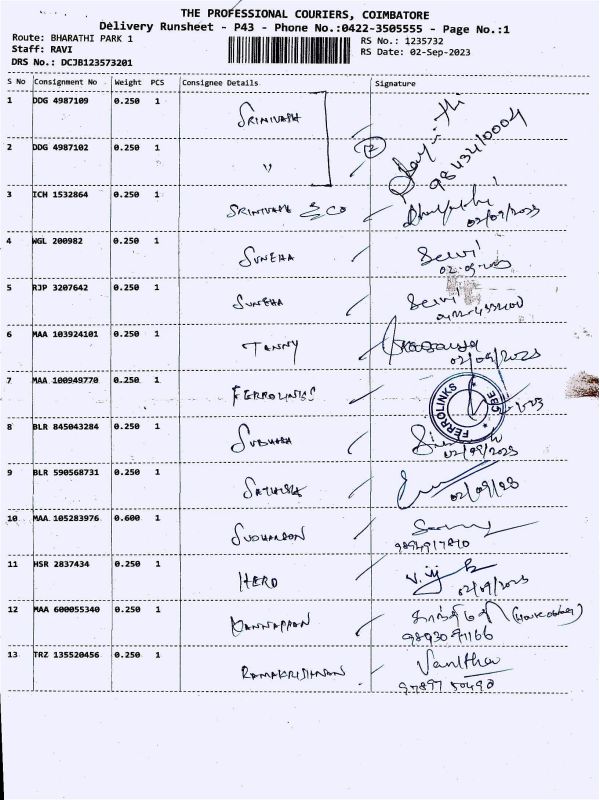 THE PROFESSIONAL COURIERS, COIMBATORE
Delivery Runsheet - P43 - Phone No.:0422-3505555 - Page No.:1
Route: BHARATHI PARK 1 RS No.: 1235732
Staff: RAVI RS Date: 02-Sep-2023
DRS No.: DCJB123573201
S No Consignment No Weight PCS Consignee Details Signature
1 DDG 4987109 0.250 1 SRINIVASH
9843410004
2 DDG 4987102 0.250 1 " 2
3 ICH 1532864 0.250 1 SRINIVASH & CO
02/09/2023
4 WGL 200982 0.250 1 SUNEHA Selvi
02-09-2023
5 RJP 3207642 0.250 1 SUNEHA Selvi
6 MAA 103924101 0.250 1 TANNY
02/09/2023
7 MAA 100949770 0.250 1 FERROLINKS FERROLINKS
8 BLR 845043284 0.250 1 SUBHASH
02/09/2023
9 BLR 590568731 0.250 1 SATHISH
02/09/23
10 MAA 105283976 0.600 1 SUDHARSON
9894917810
11 HSR 2837434 0.250 1 HERO
02/09/2023
12 MAA 600055340 0.250 1 KANNAPPAN
13 TRZ 135520456 0.250 1 RAMAKRISHNAN Vanitha
97897 50498